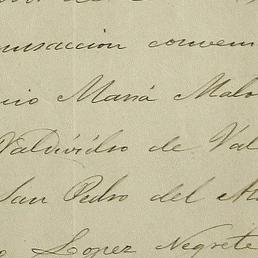 nsaccion conven
cio Maria Malo
Valdivièlso de Val
San Pedro del A
Lopez Negrete